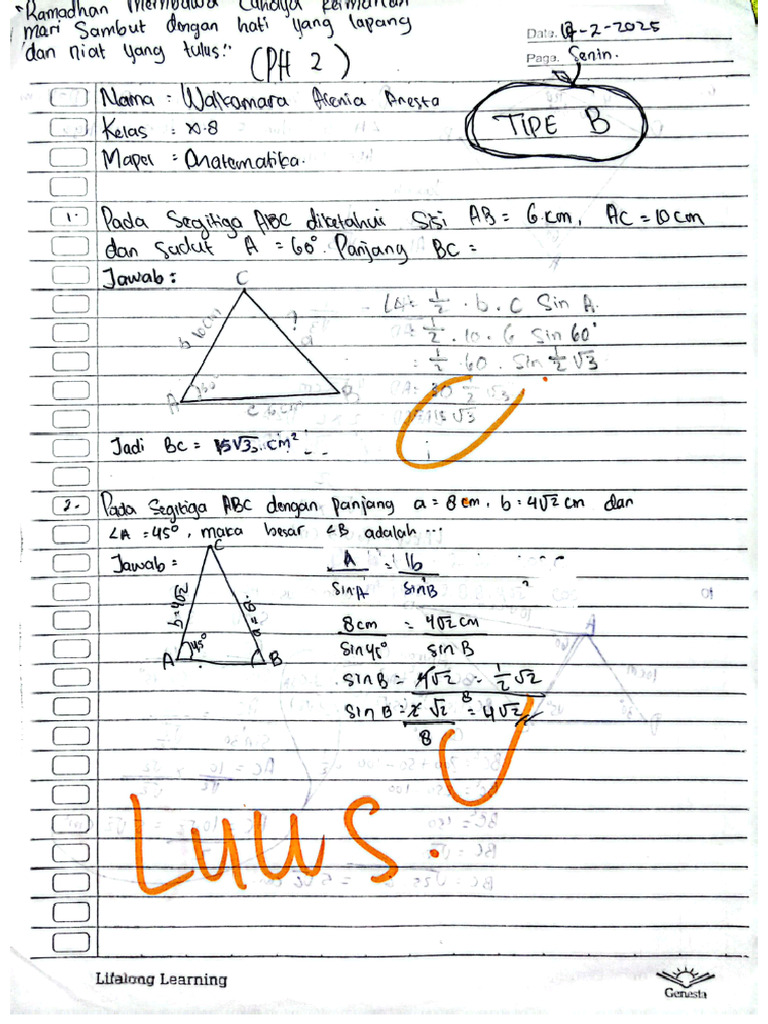 "Ramadhan membawa cahaya
mari Sambut dengan hati yang lapang
dan niat yang tulus."
(PH 2)
Date. 17-2-2025
Page. Senin.
Nama : Walkomara Arenia Anesta
Kelas : XI.8
Mapel : Matematika.
TIPE B
1. Pada Segitiga ABC diketahui Sisi AB = 6 cm, AC = 10 cm
dan sudut A = 60°. Panjang BC =
Jawab :
C
b 10 cm
?
a
A
60°
c 6 cm
B
L∆ = 1/2 . b . c Sin A.
= 1/2 . 10 . 6 Sin 60°
: 1/2 . 60 . Sin 1/2 √3
30 1/2 √3
15 √3
Jadi BC = 15√3 cm²
2. Pada Segitiga ABC dengan panjang a = 8 cm, b = 4√2 cm dan
∠A = 45°, maka besar ∠B adalah ...
Jawab =
C
b = 4√2
A
45°
B
A / Sin A = b / Sin B
8 cm / Sin 45° = 4√2 cm / Sin B
Sin B = 4√2 = 1/2 √2
8
Sin B = 2 √2 / 8 = 4√2
Luus.
Lifelong Learning
Genesta